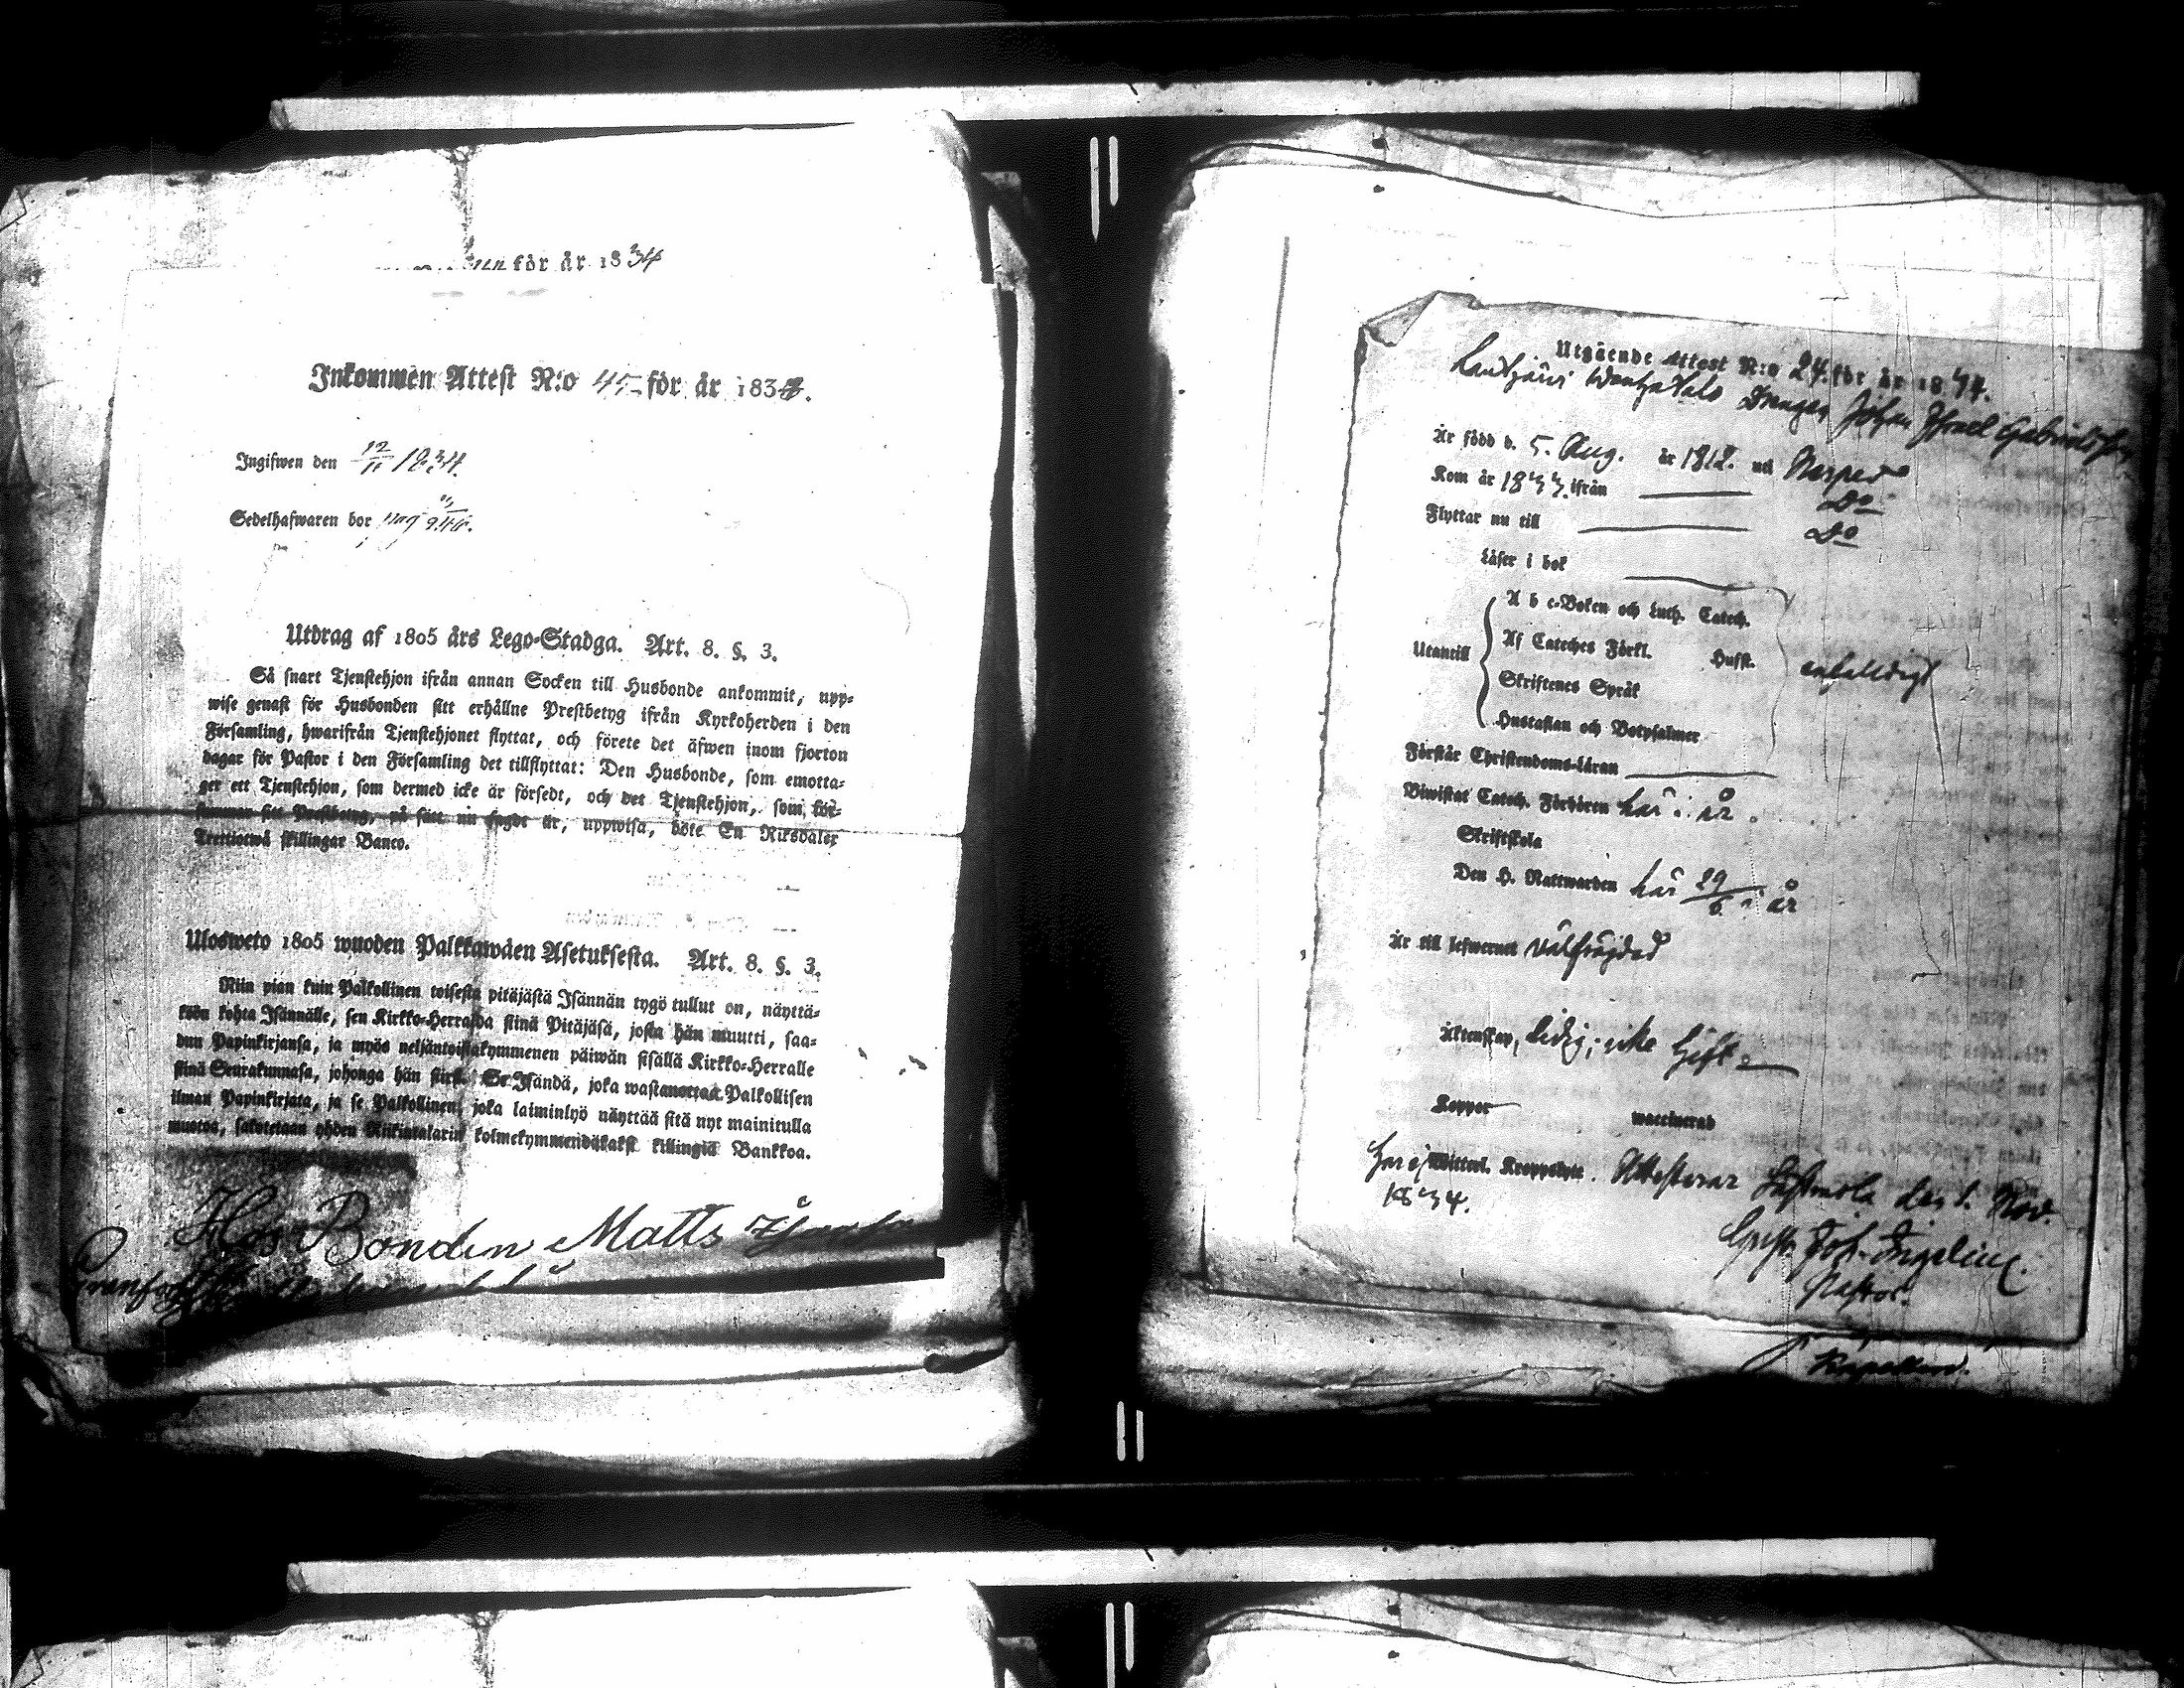 för år 1834
Inkommen Attest N:o 45 för år 1834.
Ingifwen den 12/11 1834.
Sedelhafwaren bor pag 246.
Utdrag af 1805 års Lego-Stadga. Art. 8. §. 3.
Så snart Tjenstehjon ifrån annan Socken till Husbonde ankommit, upp-
wise genast för Husbonden sitt erhållne Prestbetyg ifrån Kyrkoherden i den
Församling, hwarifrån Tjenstehjonet flyttat, och förete det äfwen inom fjorton
dagar för Pastor i den Församling det tillflyttat: Den Husbonde, som emotta-
ger ett Tjenstehjon, som dermed icke är försedt, och det Tjenstehjon, som för-
summar sitt Prestbetyg, på sätt nu sagdt är, uppwisa, böte En Riksdaler
Trettiotwå skillingar Banco.
Ulosweto 1805 wuoden Palkkawäen Asetuksesta. Art. 8. §. 3.
Niin pian kuin Palkollinen toisesta pitäjästä Isännän tygö tullut on, näyttä-
kään kohta Isännälle, sen Kirkko-Herralda siinä Pitäjäsä, josta hän muutti, saa-
dun Papinkirjansa, ja myös neljäntoistakymmenen päiwän sisällä Kirkko-Herralle
siinä Seurakunnasa, johonga hän siirsi. Se Isändä, joka wastanottaa Palkollisen
ilman Papinkirjata, ja se Palkollinen, joka laiminlyö näyttää sitä nyt mainitulla
muotoa, sakotetaan yhden Riikintalarin kolmekymmendäkaksi killingiä Bankkoa.
Hos Bonden Matts
Utgående Attest N:o 24. för år 1834.
Drängen Johan Israel Gabrielsson
Är född d. 5. Aug. år 1812. uti
Kom år 1833. ifrån Do
Flyttar nu till Do
Läser i bok
A b c-Boken och Luth. Catech.
Utantill Af Cateches Förkl. Husst. enfalldigt
Skriftenes Språk
Hustaflan och Botpsalmer
Förstår Christendoms-Läran
Biwistat Catech. Förhören här i år.
Skriftskola
Den H. Nattwarden här 29/6 i år
Är till lefwernet wälfrägdad
Äktenskap, ledig, icke Gift
Koppor waccinerad
Har ej Witterl. Kroppslyte. Attesterar Lästmola den 1. Nov.
1834.
Gust. Joh. Ingelius.
Pastor.
Kapellan.